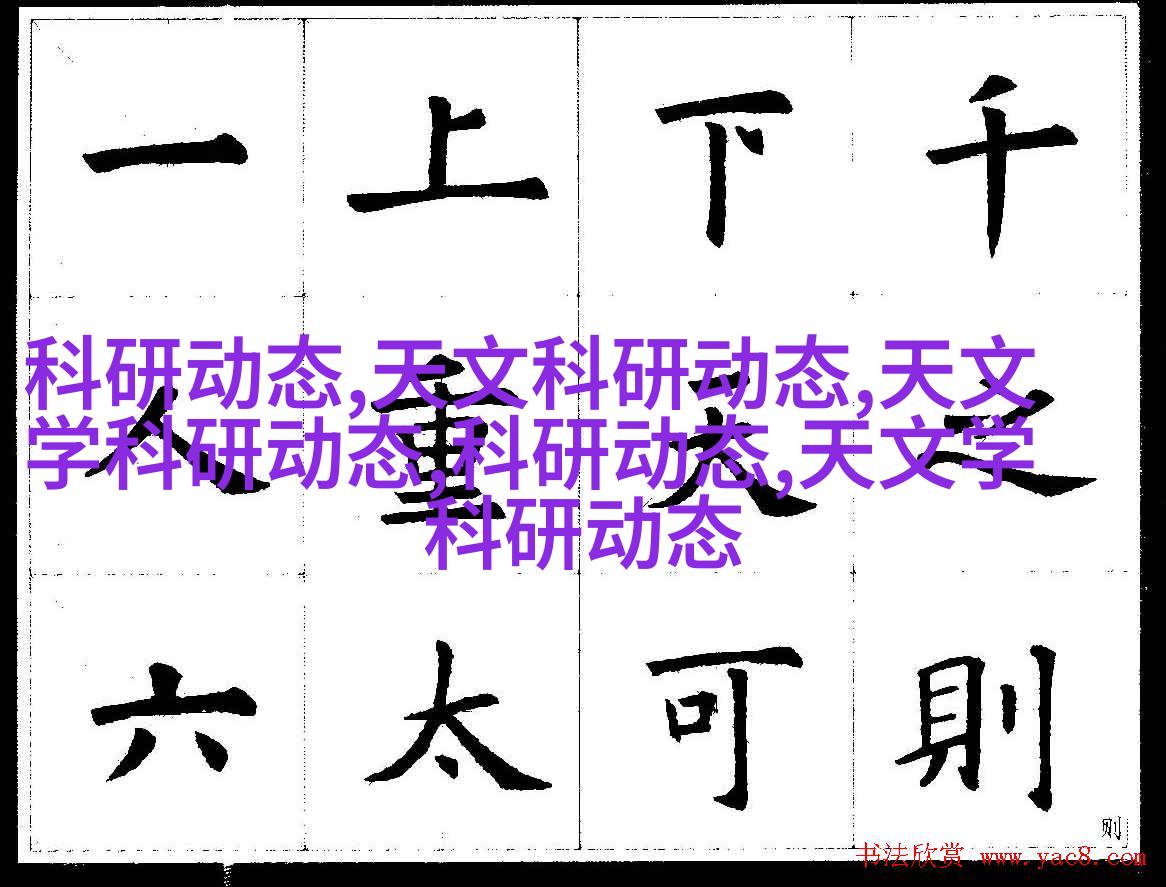 一 上 下 千
科研动态,天文科研动态,天文
学科研动态,科研动态,天文学
科研动态
人 重 之
六 太 可 則
则
书法欣赏 www.yac8.com